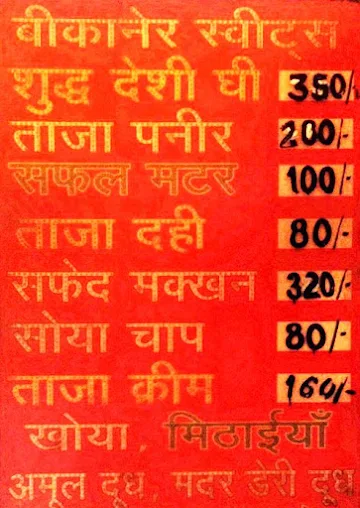 बीकानेर स्वीट्स
शुद्ध देशी घी 350/-
ताजा पनीर 200/-
सफल मटर 100/-
ताजा दही 80/-
सफेद मक्खन 320/-
सोया चाप 80/-
ताजा क्रीम 160/-
खोया, मिठाईयाँ
अमूल दूध, मदर डेरी दूध